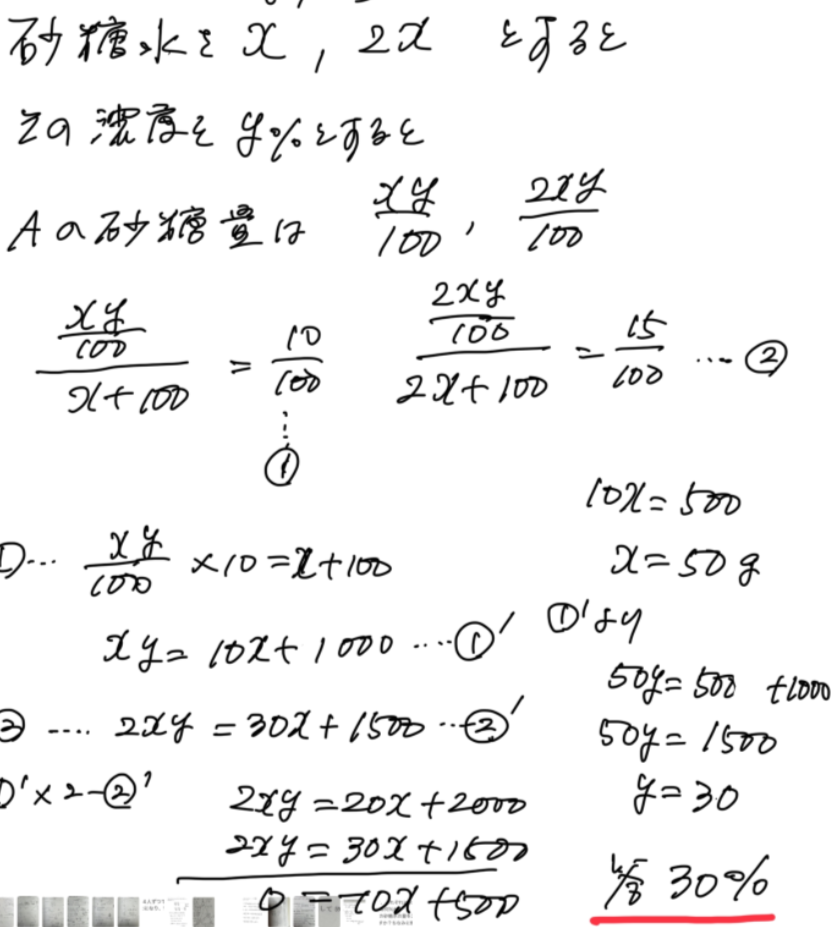 砂糖水を x , 2x とすると
その濃度を y%とすると
Aの砂糖量は xy/100 , 2xy/100
(xy/100)/(x+100) = 10/100 …①
(2xy/100)/(2x+100) = 15/100 …②
①… xy/100 ×10=x+100
xy= 10x+1000 …①′
②…. 2xy = 30x+1500 …②′
①′×2-②′
2xy=20x+2000
2xy=30x+1500
0=-10x+500
10x=500
x=50g
①′より
50y=500 +1000
50y=1500
y=30
答 30%